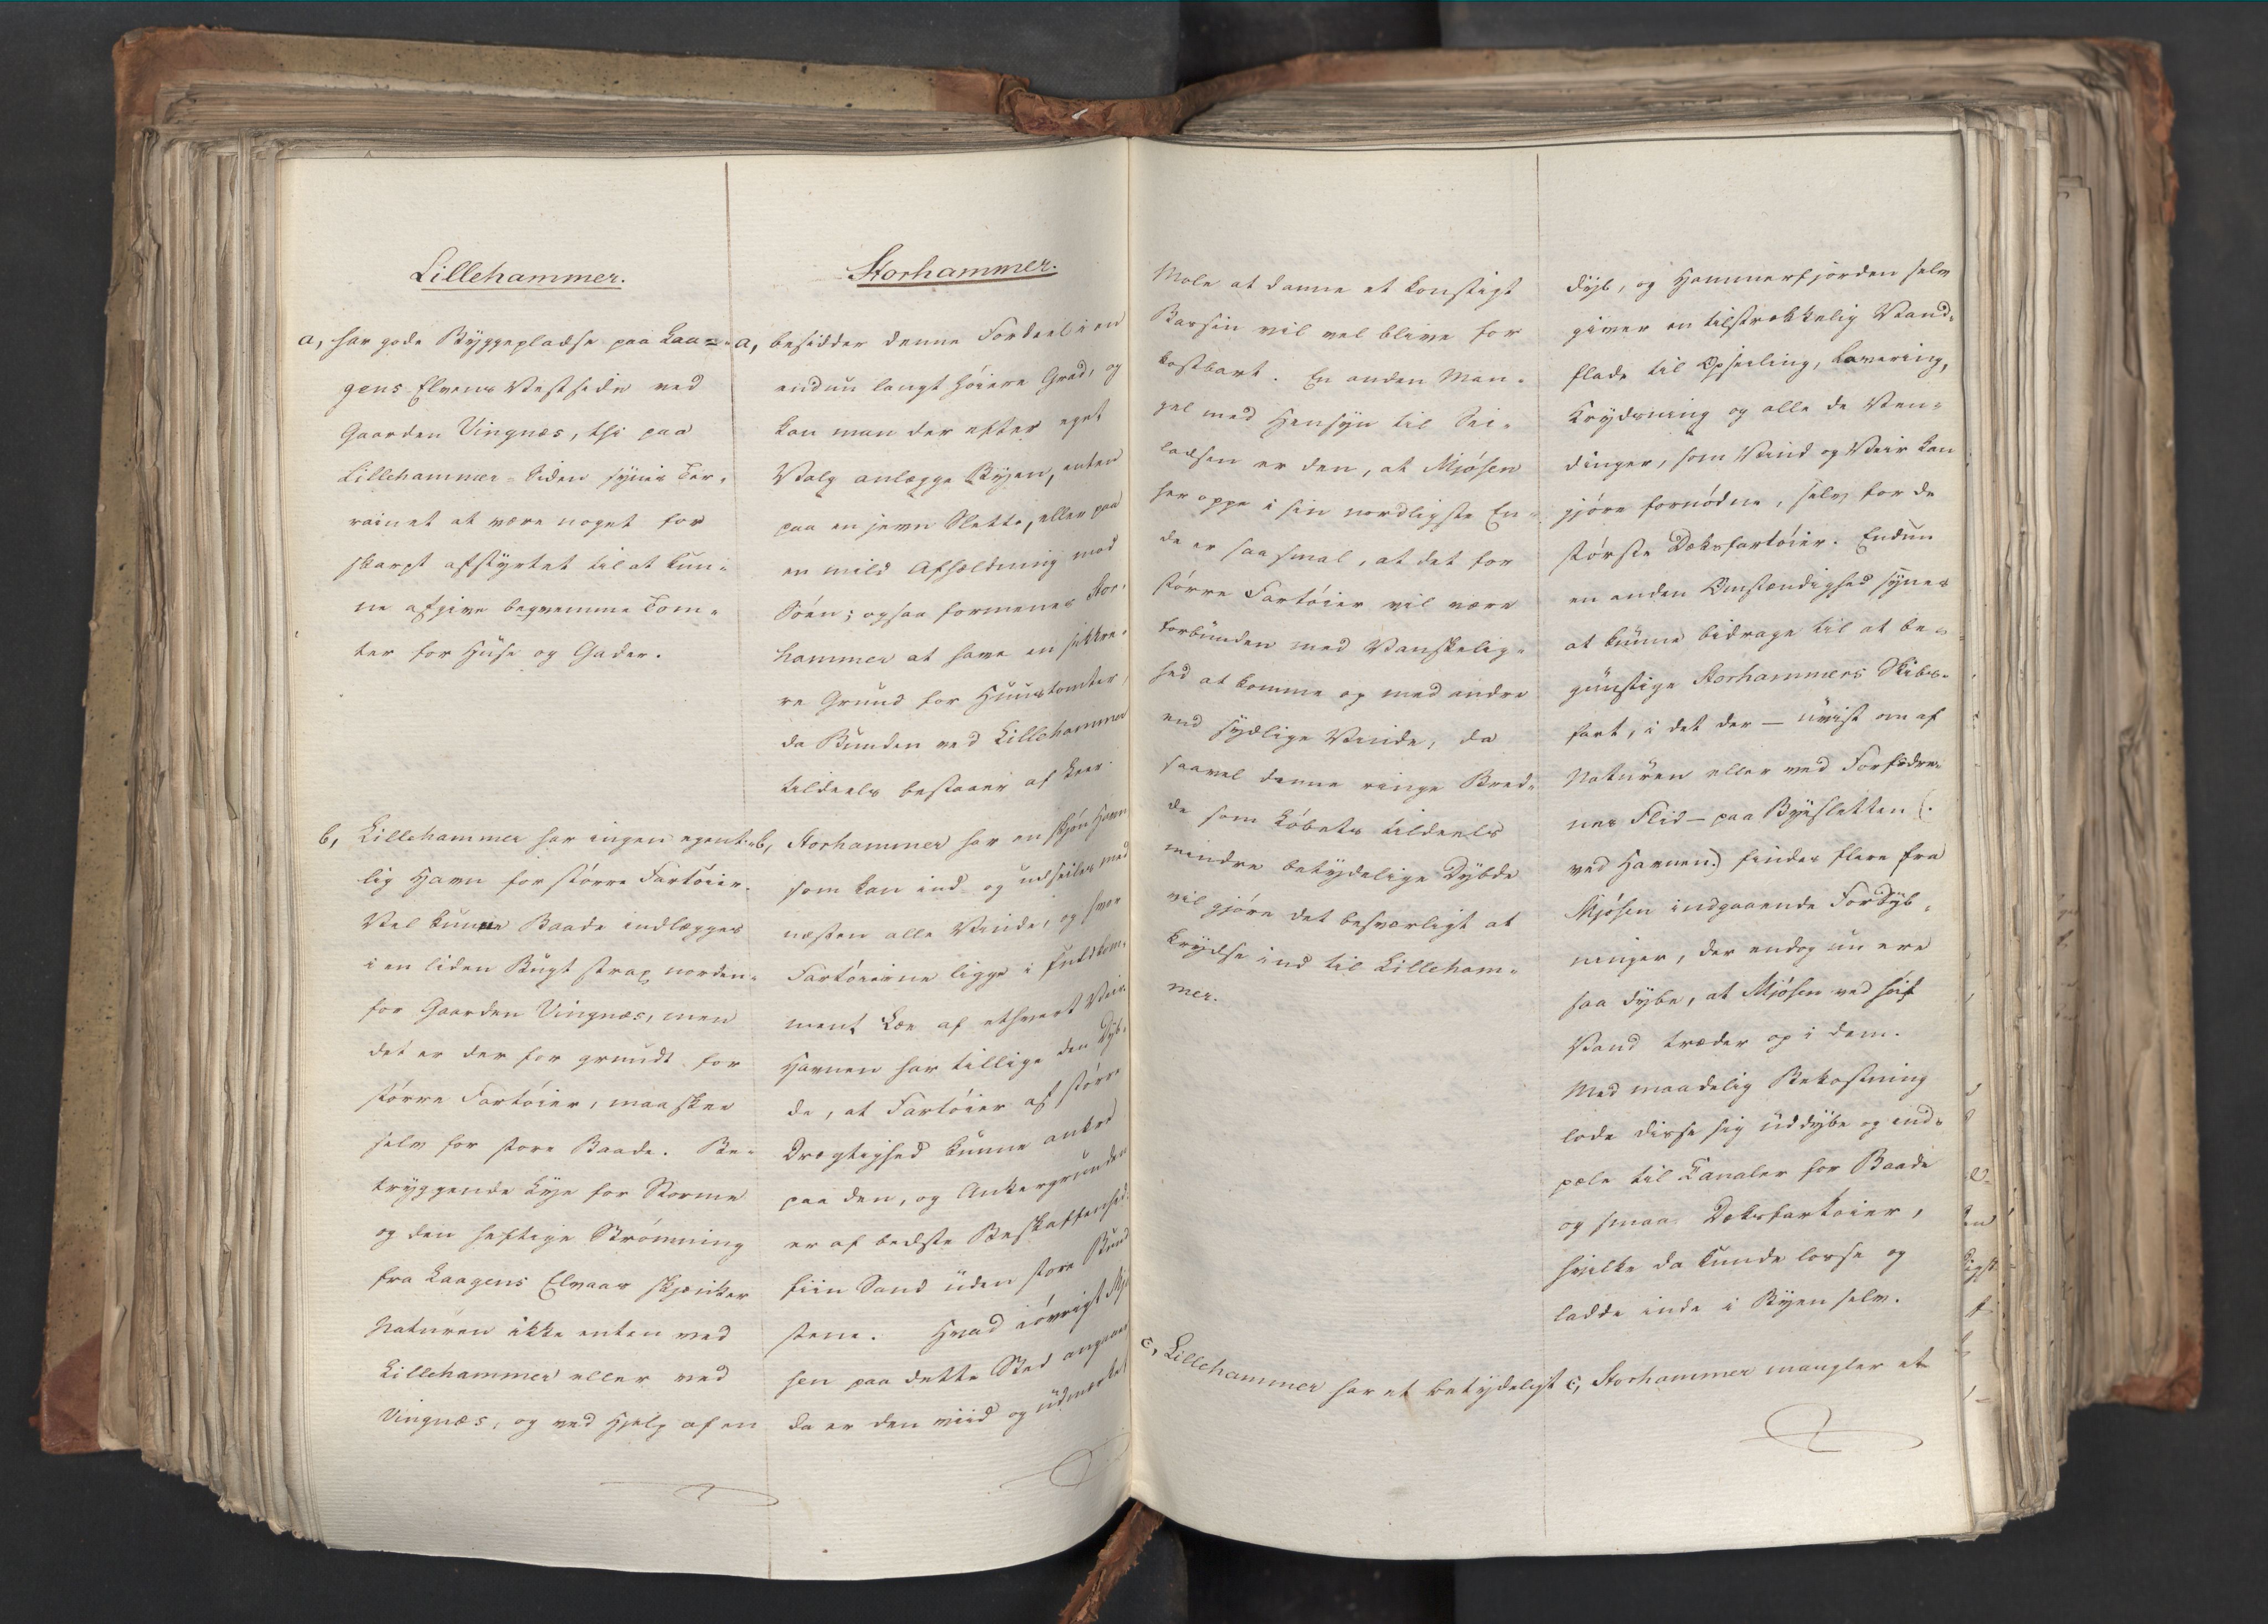 Lillehammer.
a, har gode Byggepladse paa Laa=
gens Elvens Vestside ved
Gaarden Vingnæs, thi paa
Lillehammer-Siden synes Ter-
rainet at være noget for
skarpt afstyrtet til at kun-
ne afgive beqvemme Tom-
ter for Huse og Gader.
b, Lillehammer har ingen egent-
lig Havn for større Fartøier.
Vel kunne Baade indlægges
i en liden Bugt strax norden-
for Gaarden Vingnæs, men
det er der for grundt for
større Fartøier, maaskee
selv for store Baade. Be-
tryggende Lye for Storme
og den heftige Strømning
fra Laagens Elvaas skjænker
Naturen ikke enten ved
Lillehammer eller ved
Vingnæs, og ved Hjelp af en
Storhammer.
a, besidder denne Fordeel i en
endnu langt høiere Grad, og
kan man der efter eget
Valg anlægge Byen, enten
paa en jevn Slette, eller paa
en mild Afhældning mod
Søen; ogsaa formenes Stor-
hammer at have en sikkre-
re Grund for Huustomter,
da Bunden ved Lillehammer
tildeels bestaaer af Leer.
b, Storhammer har en skjøn Havn
som kan ind og udseiles med
næsten alle Vinde, og hvor
Fartøierne ligge i fuldkom-
ment Læe af ethvert Veir.
Havnen har tillige den Dyb-
de, at Fartøier af større
Drægtighed kunne ankre
paa den, og Ankergrunden
er af bedste Beskaffenhed
fiin Sand uden store Bund
stene. Hvad iøvrigt Mjø
sen paa dette Sted angaaer
da er den viid og udmærket
Mole at danne et konstigt
Bassin vil vel blive for
kostbart. En anden Man-
gel med Hensyn til Sei-
ladsen er den, at Mjøsen
her oppe i sin nordligste En-
de er saa smal, at det for
større Fartøier vil være
forbunden med Vanskelig-
hed at komme op med andre
end sydlige Vinde, da
saavel denne ringe Bred-
de som Løbets tildeels
mindre betydelige Dybde
vil gjøre det besværligt at
krydse ind til Lilleham-
mer.
c, Lillehammer har et betydeligt
dyb, og Hammerfjorden selv
giver en tilstrækkelig Vand-
flade til Opseiling, Lavering,
Krydsning og alle de Ven-
dinger, som Vind og Veir kan
gjøre fornødne, selv for de
største Dæksfartøier. Endnu
en anden Omstændighed synes
at kunne bidrage til at be-
gunstige Storhammers Skibs-
fart, i det der — uvist om af
Naturen eller ved Forfædre-
nes Flid — paa Byesletten (.
ved Havnen.) findes flere fra
Mjøsen indgaaende Fordyb-
ninger, der endog nu ere
saa dybe, at Mjøsen ved høit
Vand træder op i dem.
Med maadelig Bekostning
lode disse sig uddybe og ind-
pæle til Canaler for Baade
og smaa Dæksfartøier,
hvilke da kunde losse og
ladde inde i Byen selv.
c, Storhammer mangler et